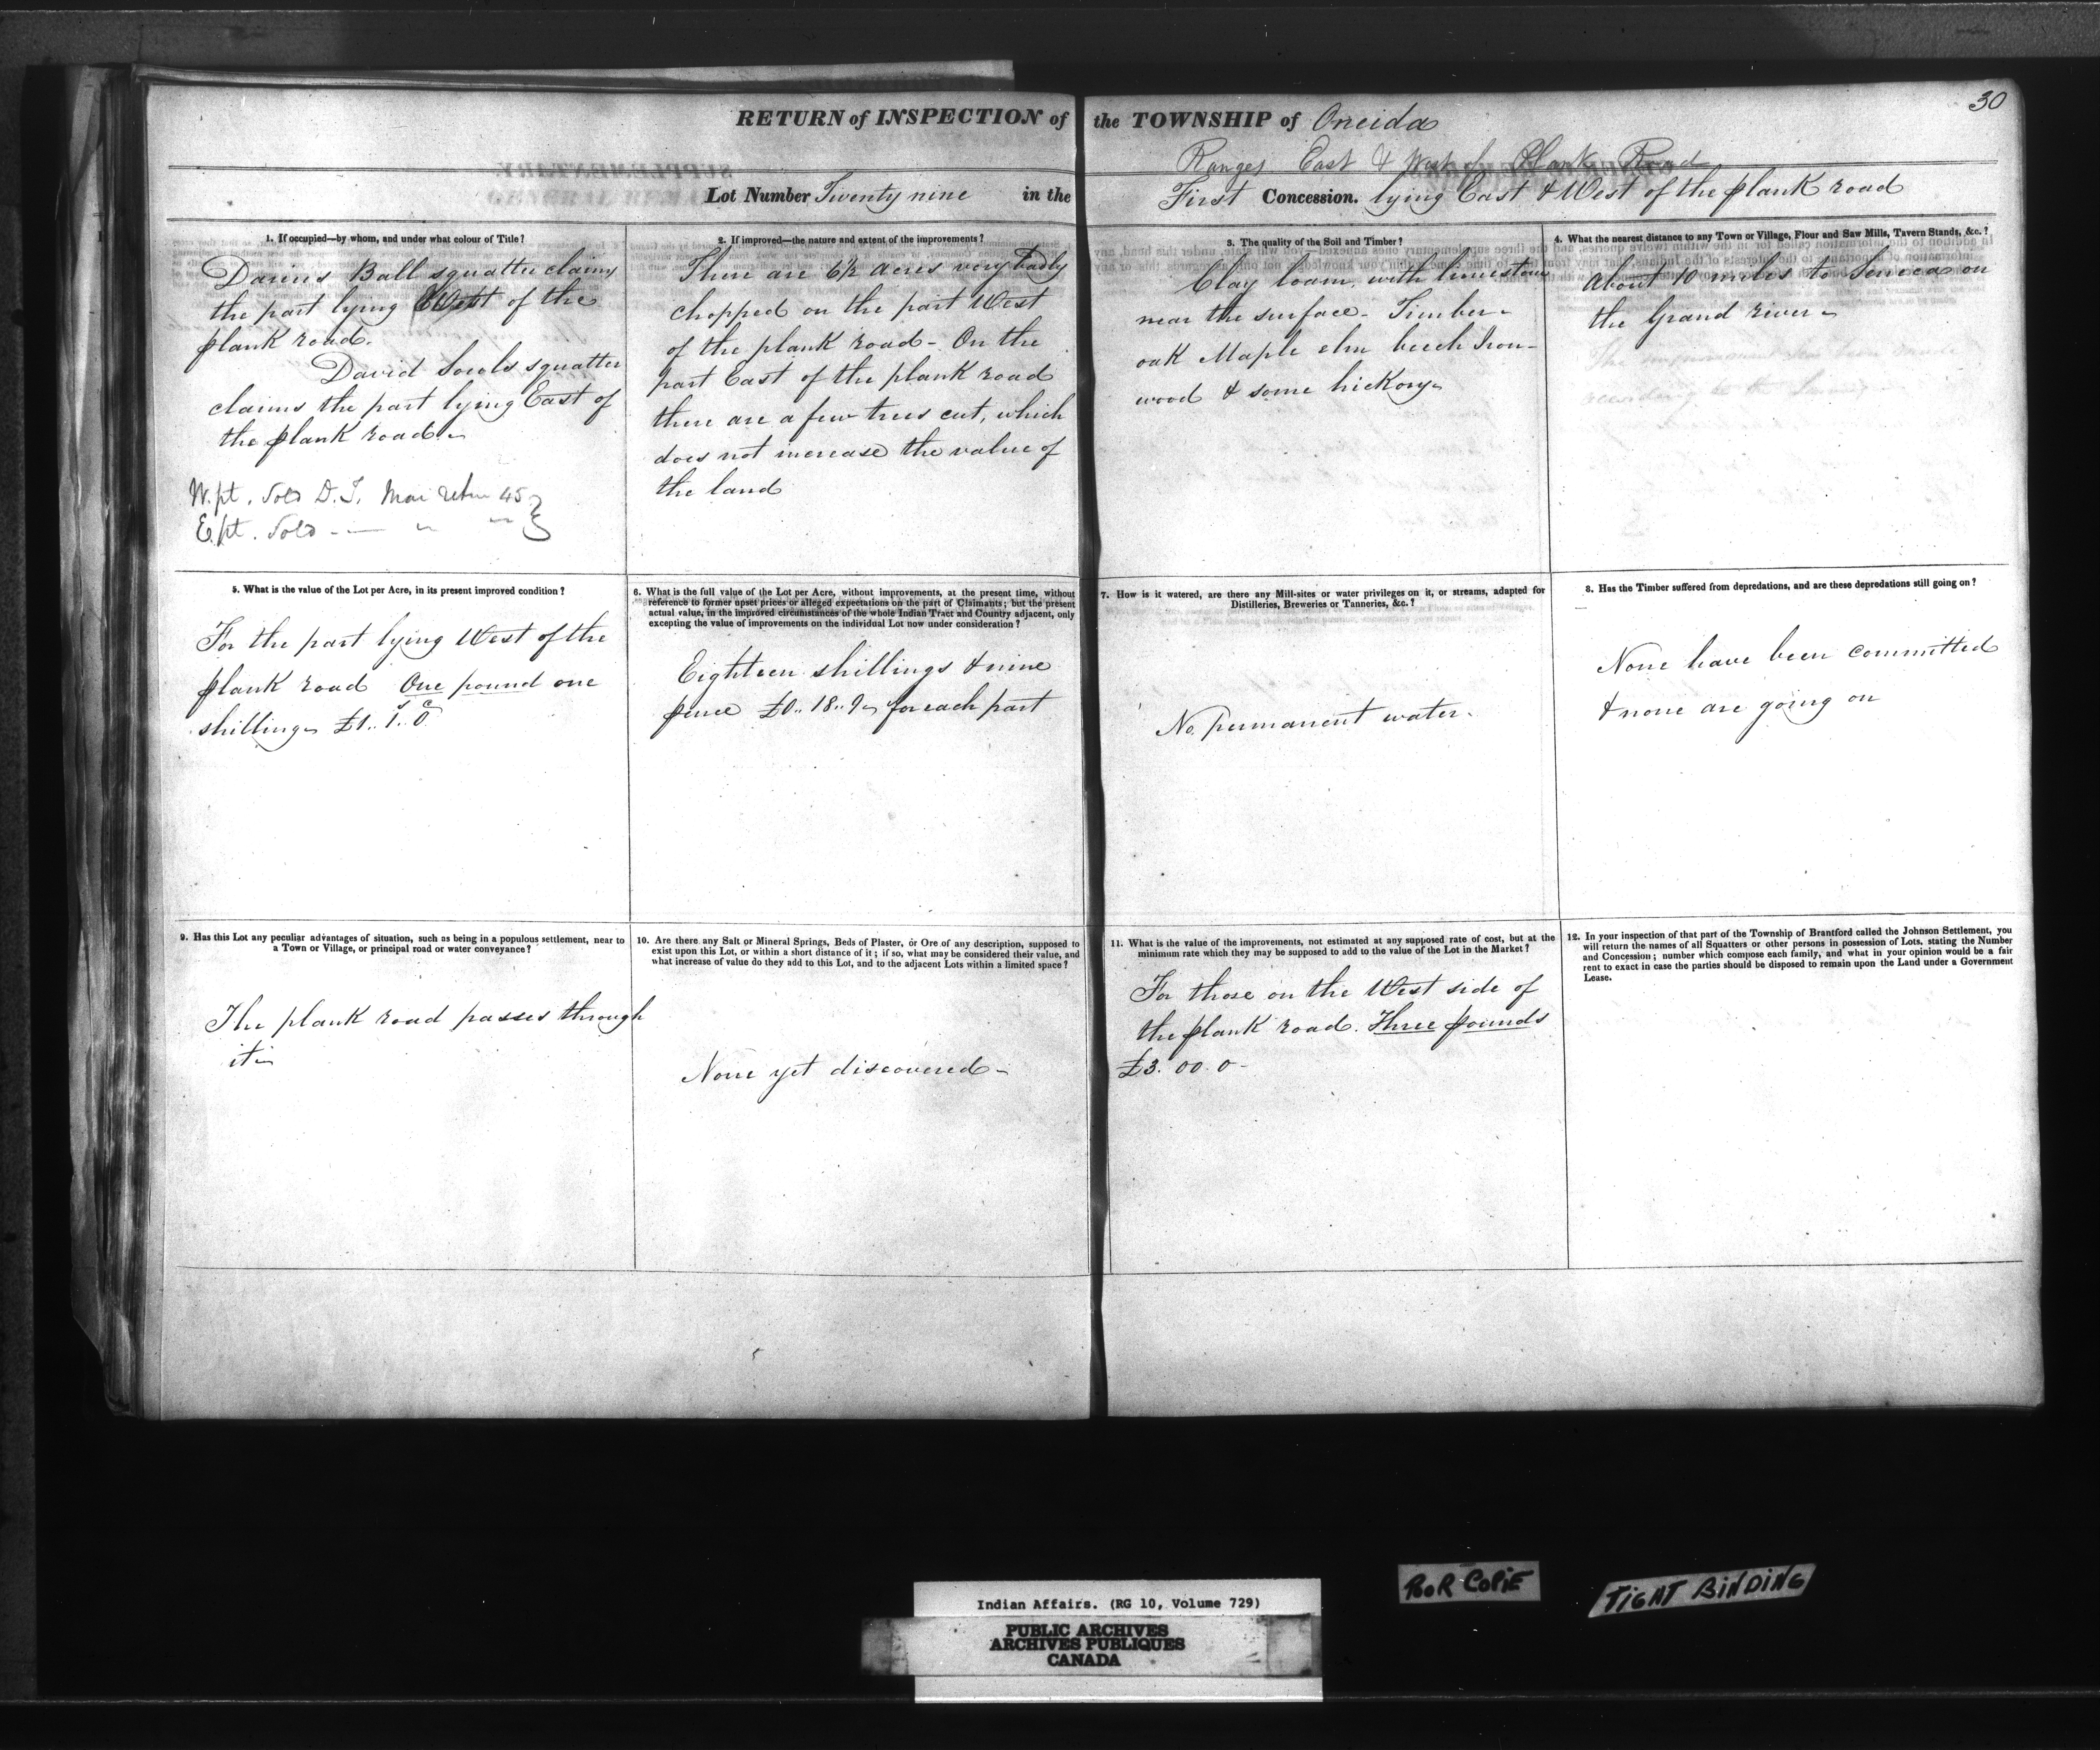 30
RETURN of INSPECTION of the TOWNSHIP of Oneida
Ranges East & West of Plank Road
Lot Number Twenty nine in the First Concession. lying East & West of the plank road
1. If occupied—by whom, and under what colour of Title?
Darius Ball squatter claims
the part lying West of the
plank road.
David Sowls squatter
claims the part lying East of
the plank road.
W. pt. Sold D. I. Mar return 45
E. pt. Sold — " "
2. If improved—the nature and extent of the improvements?
There are 6½ acres very badly
chopped on the part West
of the plank road - On the
part East of the plank road
there are a few trees cut, which
does not increase the value of
the land
3. The quality of the Soil and Timber?
Clay loam, with limestone
near the surface - Timber -
oak Maple elm beech Iron-
wood & some hickory
4. What the nearest distance to any Town or Village, Flour and Saw Mills, Tavern Stands, &c.?
About 10 miles to Seneca on
the Grand river -
5. What is the value of the Lot per Acre, in its present improved condition?
For the part lying West of the
plank road One pound one
shilling £1.. 1.. 0
6. What is the full value of the Lot per Acre, without improvements, at the present time, without
reference to former upset prices or alleged expectations on the part of Claimants; but the present
actual value, in the improved circumstances of the whole Indian Tract and Country adjacent, only
excepting the value of improvements on the individual Lot now under consideration?
Eighteen shillings & nine
pence £0.. 18.. 9 for each part
7. How is it watered, are there any Mill-sites or water privileges on it, or streams, adapted for
Distilleries, Breweries or Tanneries, &c.?
No permanent water.
8. Has the Timber suffered from depredations, and are these depredations still going on?
None have been committed
& none are going on
9. Has this Lot any peculiar advantages of situation, such as being in a populous settlement, near to
a Town or Village, or principal road or water conveyance?
The plank road passes through
it
10. Are there any Salt or Mineral Springs, Beds of Plaster, or Ore of any description, supposed to
exist upon this Lot, or within a short distance of it; if so, what may be considered their value, and
what increase of value do they add to this Lot, and to the adjacent Lots within a limited space?
None yet discovered -
11. What is the value of the improvements, not estimated at any supposed rate of cost, but at the
minimum rate which they may be supposed to add to the value of the Lot in the Market?
For those on the West side of
the plank road. Three pounds
£3. 00. 0 -
12. In your inspection of that part of the Township of Brantford called the Johnson Settlement, you
will return the names of all Squatters or other persons in possession of Lots, stating the Number
and Concession; number which compose each family, and what in your opinion would be a fair
rent to exact in case the parties should be disposed to remain upon the Land under a Government
Lease.
POOR COPIE
TIGHT BINDING
Indian Affairs. (RG 10, Volume 729)
PUBLIC ARCHIVES
ARCHIVES PUBLIQUES
CANADA